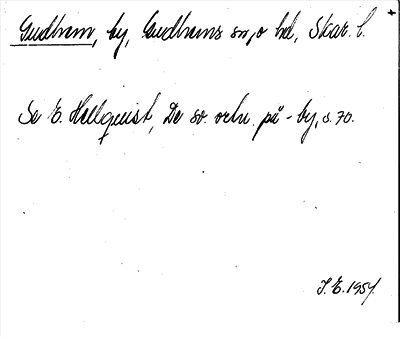 Gudhem, by, Gudhems sn, o hd, Skar. l.
Se E. Hellquist, De sv. ortn. på -by, s. 70.
I. E. 1957.